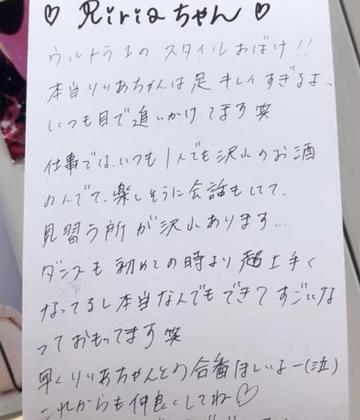 ♡ Ririaちゃん ♡
ウルトラ1のスタイルおばけ!!
本当りりあちゃんは足キレイすぎるよ、
いつも目で追いかけてます笑
仕事では、いつも1人でも沢山のお酒
のんでて、楽しそうに会話もしてて、
見習う所が沢山あります...
ダンスも初めての時より超上手く
なってるし本当なんでもできてすごいな
っておもってます笑
早くりりあちゃんとの合番ほしいよー(泣)
これからも仲良くしてね♡